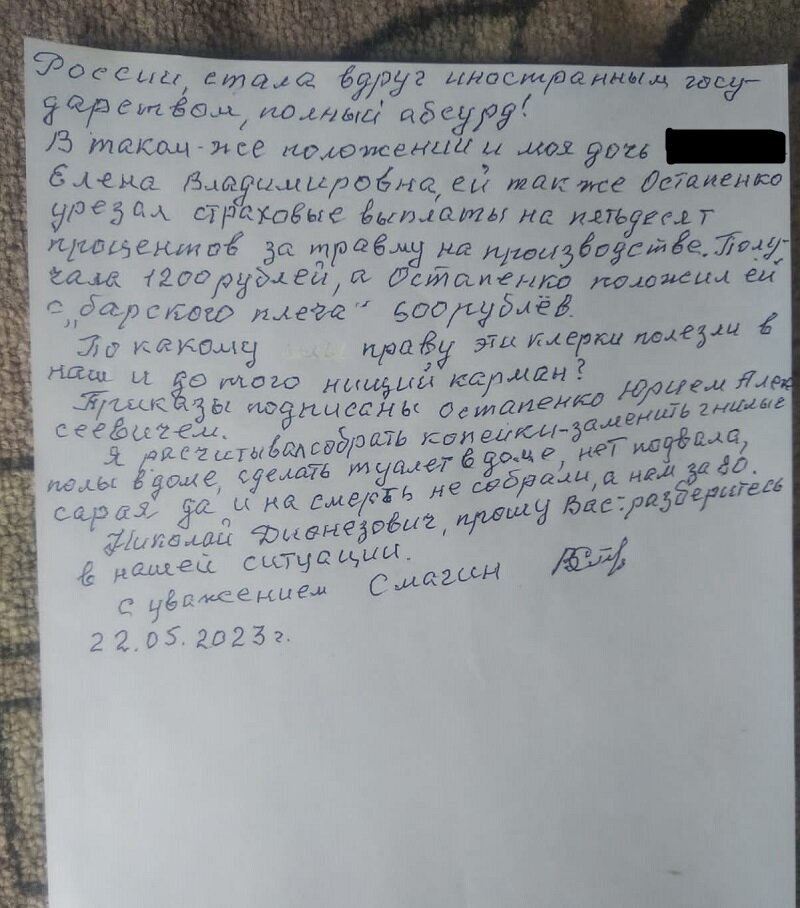 России, стала вдруг иностранным госу-
дарством, полный абсурд!
В таком-же положении и моя дочь
Елена Владимировна, ей также Остапенко
урезал страховые выплаты на пятьдесят
процентов за травму на производстве. Полу-
чала 1200 рублей, а Остапенко положил ей
с „барского плеча" 600 рублёв.
По какому праву эти клерки полезли в
наш и до того нищий карман?
Приказы подписаны Остапенко Юрием Алек
сеевичем.
Я расчитывал собрать копейки-заменить гнилые
полы в доме, сделать туалет в доме, нет подвала,
сарая да и на смерть не собрали, а нам за 80.
Николай Дионезович, прошу Вас:-разберитесь
в нашей ситуации.
с уважением Смагин
22.05.2023г.